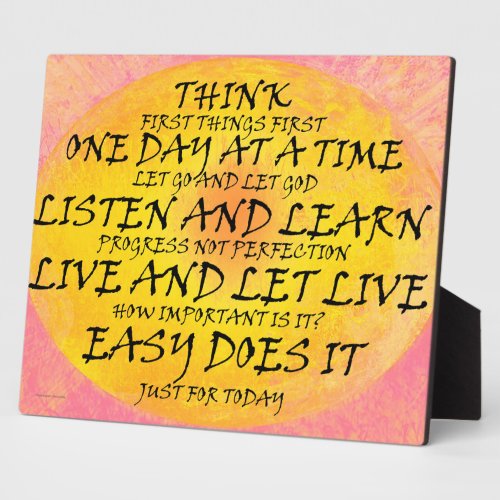 THINK
FIRST THINGS FIRST
ONE DAY AT A TIME
LET GO AND LET GOD
LISTEN AND LEARN
PROGRESS NOT PERFECTION
LIVE AND LET LIVE
HOW IMPORTANT IS IT?
EASY DOES IT
JUST FOR TODAY